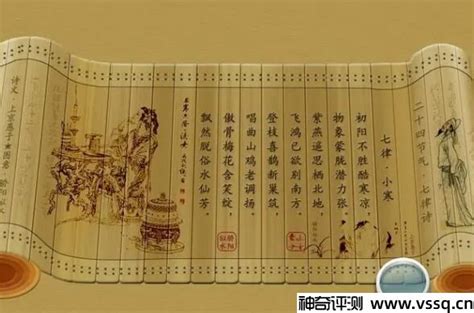 二十四节气·七律诗
七律·小寒
初阳不胜酷寒凉，
物象蒙胧潜力张。
紫燕遥思栖北地，
飞鸿已欲别南方。
登枝喜鹊新巢筑，
唱曲山鸡老调扬。
傲骨梅花含笑绽，
飘然脱俗水仙芳。
诗文
神奇评测 www.vssq.cn